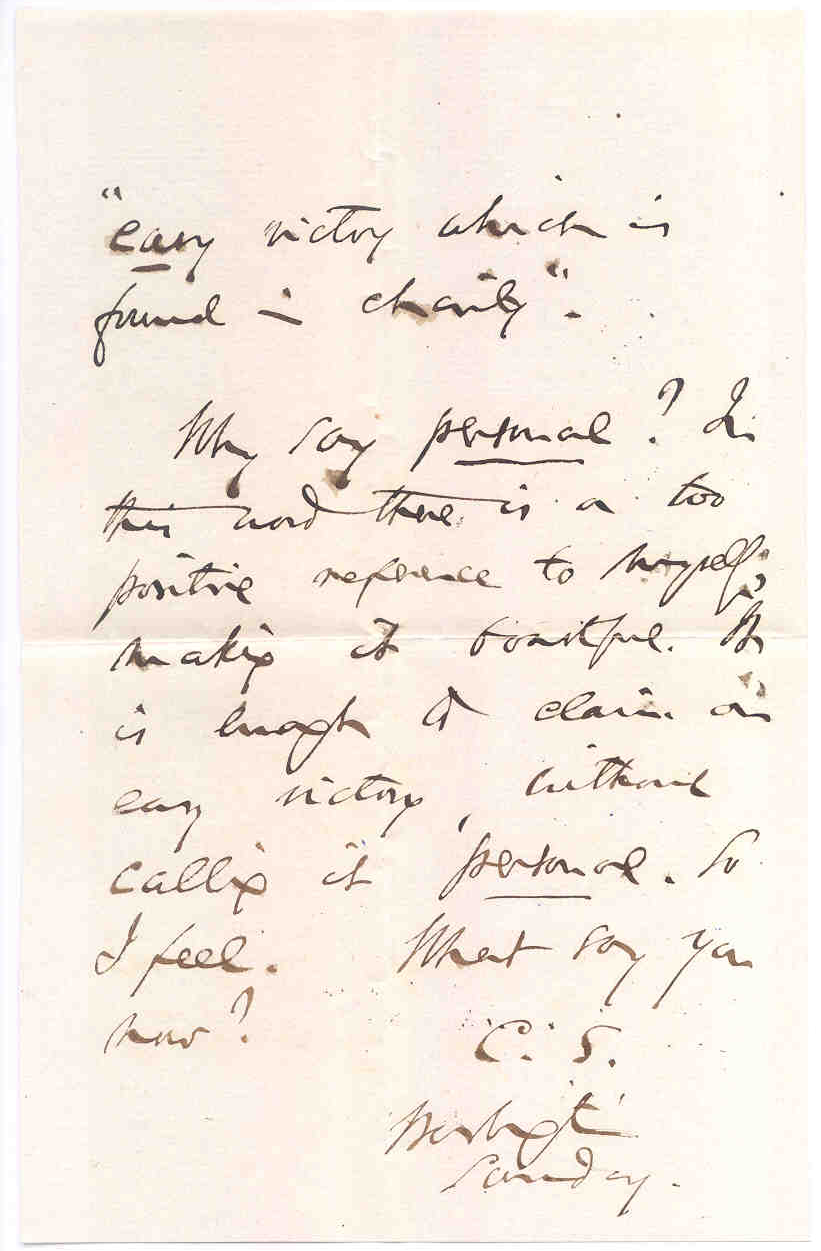 "easy victory which is
found in charity".
Why say personal? In
this word there is a too
positive reference to myself,
making it boastful. It
is enough to claim an
easy victory, without
calling it personal. So
I feel. What say you
now?
C. S.
Sunday.